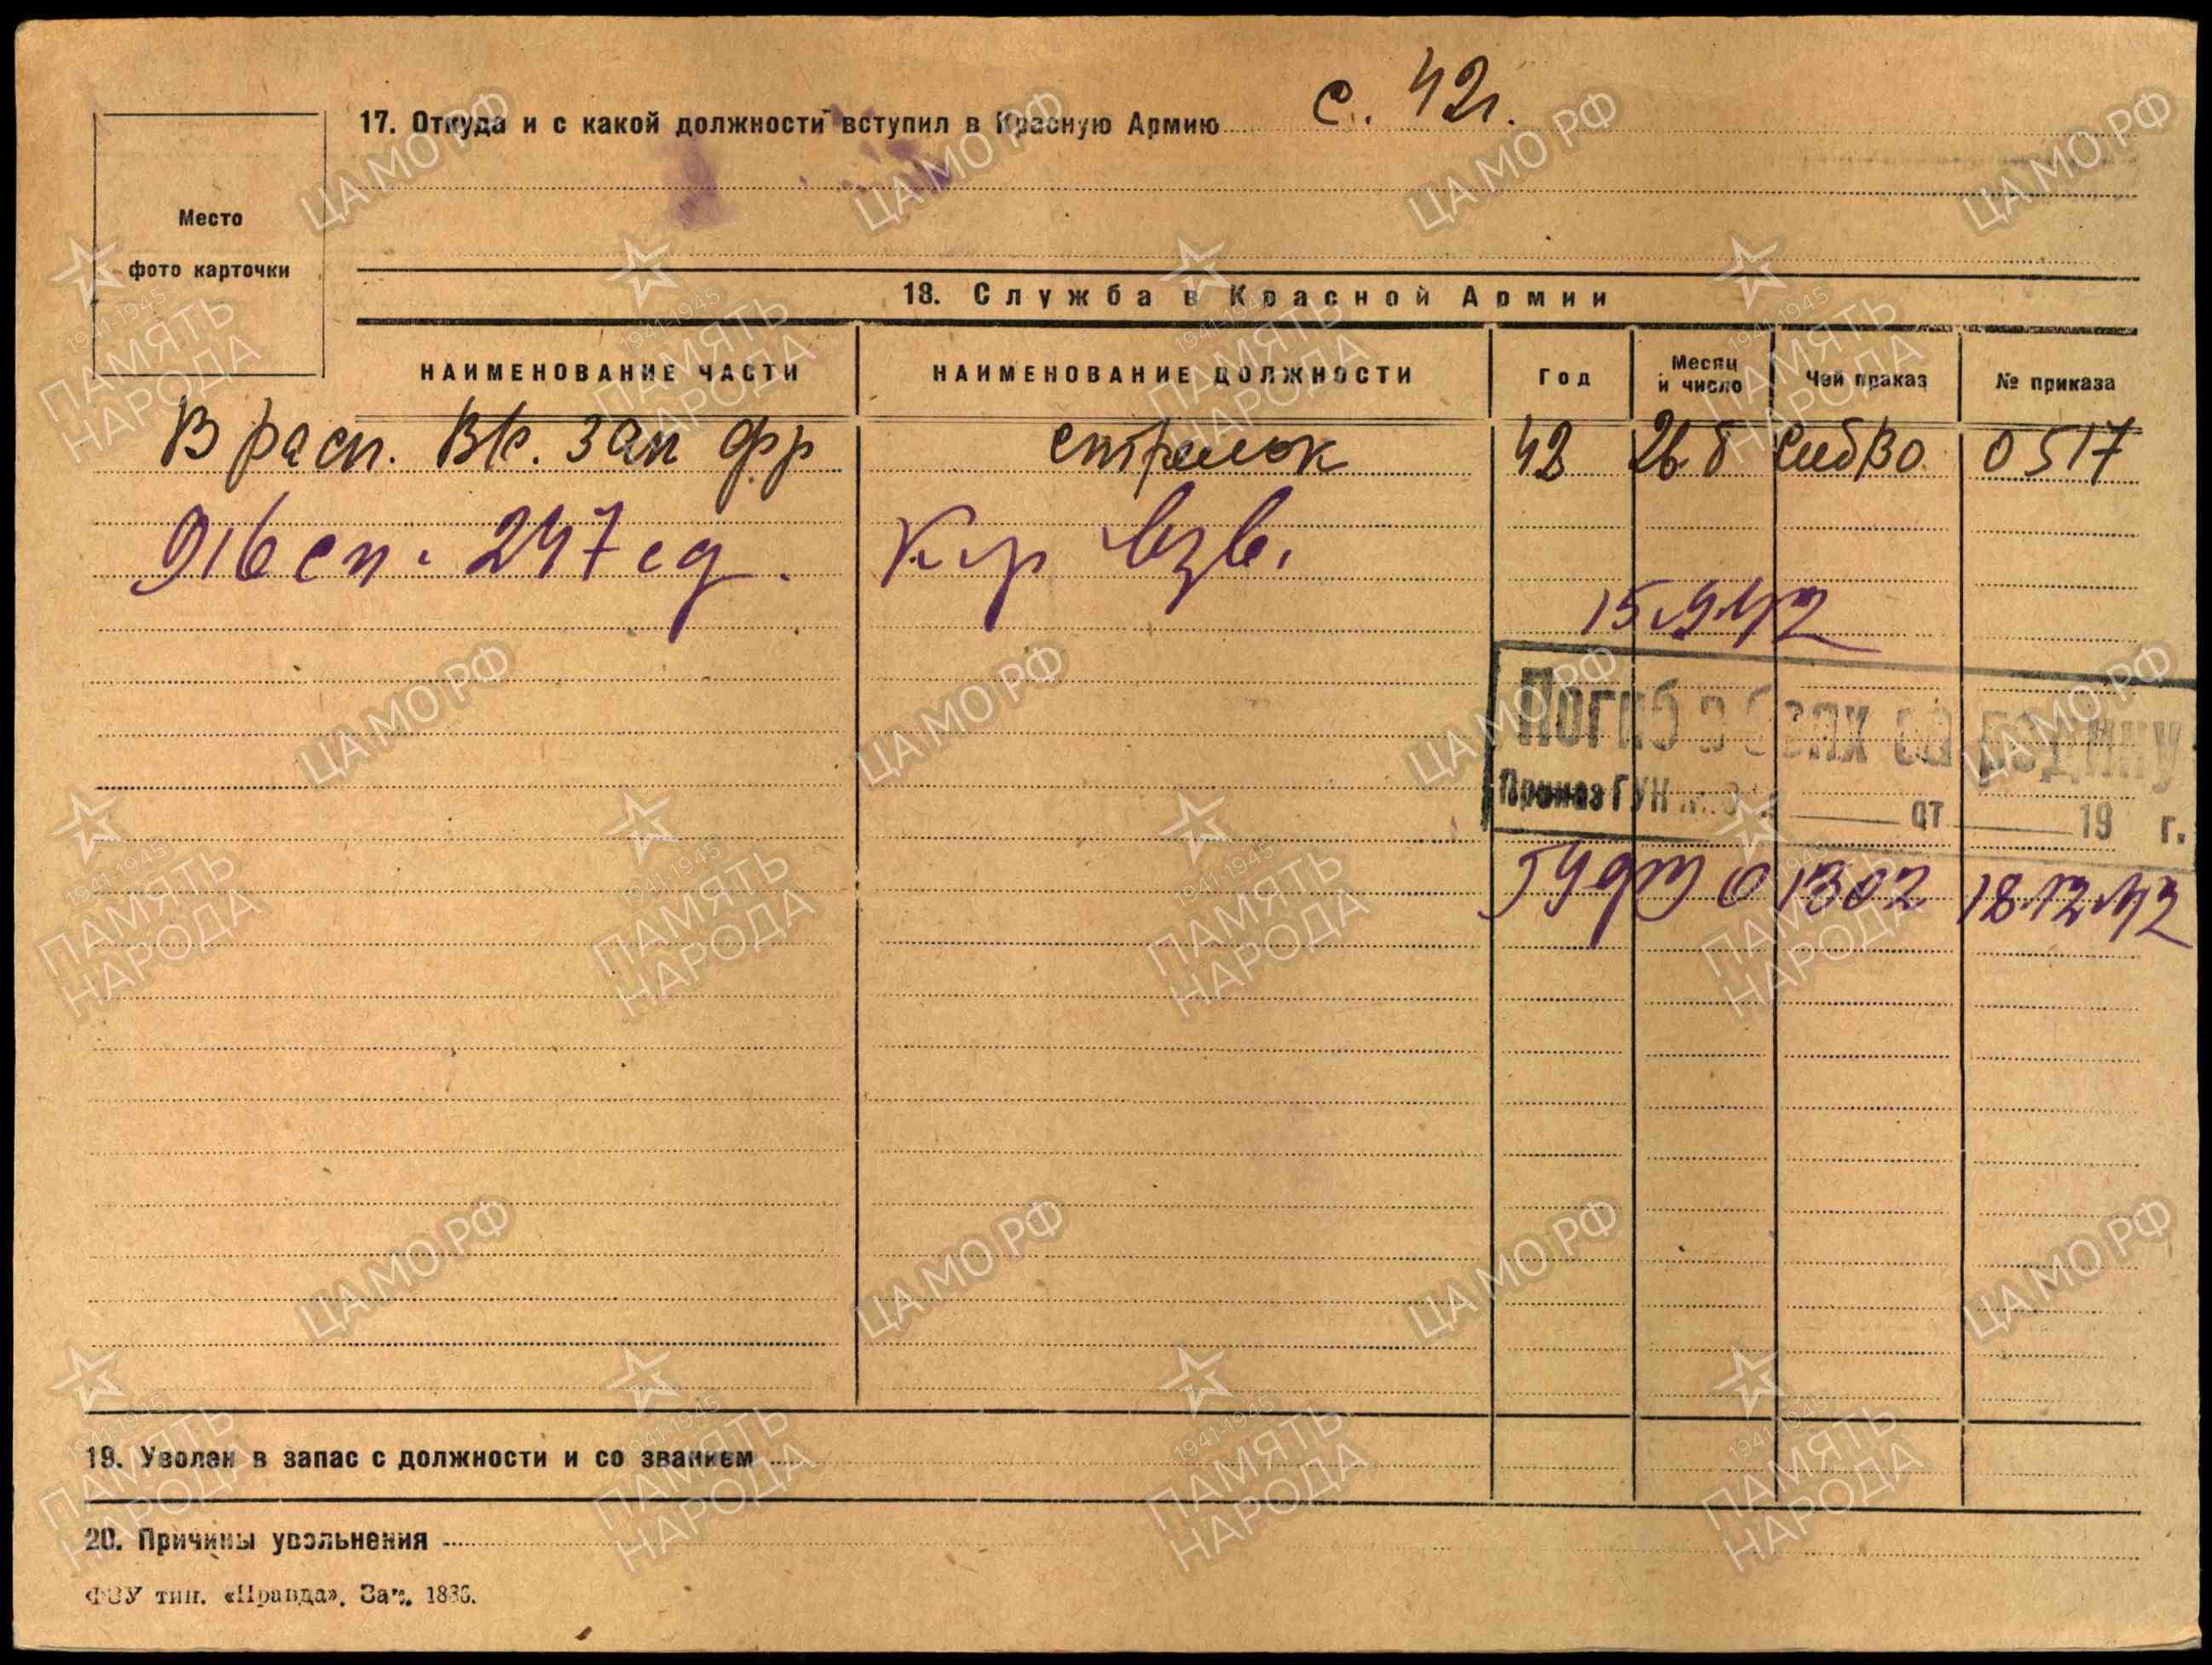 17. Откуда и с какой должности вступил в Красную Армию с. 42г.
Место
фото карточки
18. Служба в Красной Армии
НАИМЕНОВАНИЕ ЧАСТИ НАИМЕНОВАНИЕ ДОЛЖНОСТИ Год Месяц и число Чей приказ № приказа
В расп. В/с. Зап фр стрелок 42 26.8 СибВО 0517
916 сп. 247 сд. К-р взв.
15.9.42
Погиб в боях за Родину
Приказ ГУК от 19 г.
ГУФ 01302 18.12.42
19. Уволен в запас с должности и со званием
20. Причины увольнения
ФЗУ тип. «Правда». Зак. 1836.
ЦАМО РФ
1941-1945
ПАМЯТЬ
НАРОДА